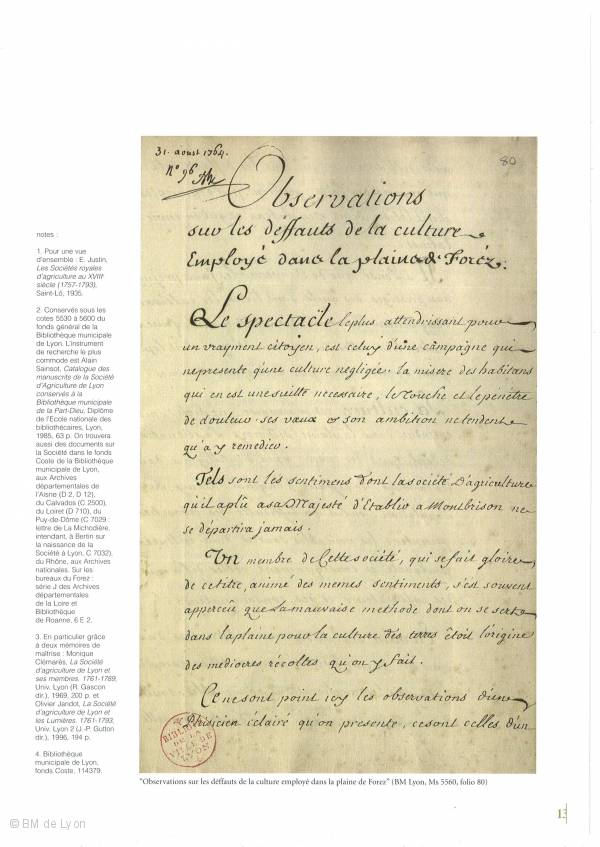 notes :
1. Pour une vue
d'ensemble : E. Justin,
Les Sociétés royales
d'agriculture au XVIIIe
siècle (1757-1793),
Saint-Lô, 1935.
2. Conservés sous les
cotes 5530 à 5600 du
fonds général de la
Bibliothèque municipale
de Lyon. L'instrument
de recherche le plus
commode est Alain
Sainsot, Catalogue des
manuscrits de la Société
d'Agriculture de Lyon
conservés à la
Bibliothèque municipale
de la Part-Dieu, Diplôme
de l'Ecole nationale des
bibliothécaires, Lyon,
1985, 63 p. On trouvera
aussi des documents sur
la Société dans le fonds
Coste de la Bibliothèque
municipale de Lyon,
aux Archives
départementales de
l'Aisne (D 2, D 12),
du Calvados (C 2500),
du Loiret (D 710), du
Puy-de-Dôme (C 7029 :
lettre de La Michodière,
intendant, à Bertin sur
la naissance de la
Société à Lyon, C 7032),
du Rhône, aux Archives
nationales. Sur les
bureaux du Forez :
série J des Archives
départementales
de la Loire et
Bibliothèque
de Roanne, 6 E 2.
3. En particulier grâce
à deux mémoires de
maîtrise : Monique
Clémarès, La Société
d'agriculture de Lyon et
ses membres. 1761-1789,
Univ. Lyon (R. Gascon
dir.), 1969, 200 p. et
Olivier Jandot, La Société
d'agriculture de Lyon et
les Lumières. 1761-1793,
Univ. Lyon 2 (J.-P. Gutton
dir.), 1996, 194 p.
4. Bibliothèque
municipale de Lyon,
fonds Coste, 114379.
31. aoust 1764.
N° 96
80
Observations
sur les déffauts de la culture
Employé dans la plaine de Foréz.
Le spectacle le plus attendrissant pour
un vrayment citoyen, est celuy d'une campagne qui
ne presente qu'une culture negligée. la misere des habitans
qui en est une suitte necessaire, le touche et le penétre
de douleur. ses vœux & son ambition ne tendent
qu'a y remedier.
Téls sont les sentimens dont la société d'agriculture
qu'il a plû a sa Majesté d'Etablir a Montbrison ne
se départira jamais.
Un membre de Cette société, qui se fait gloire
de ce titre, animé des memes sentiments, s'est souvent
apperceu que La mauvaise methode dont on se sert
dans la plaine pour la culture des terres êtoit l'origine
des mediocres récoltes qu'on y fait.
Ce ne sont point icy les observations d'un
Phisicien éclairé qu'on presente, ce sont celles d'un
BIBLIOTH.
DE LA
VILLE DE
LYON
"Observations sur les déffauts de la culture employé dans la plaine de Forez" (BM Lyon, Ms 5560, folio 80)
13
© BM de Lyon